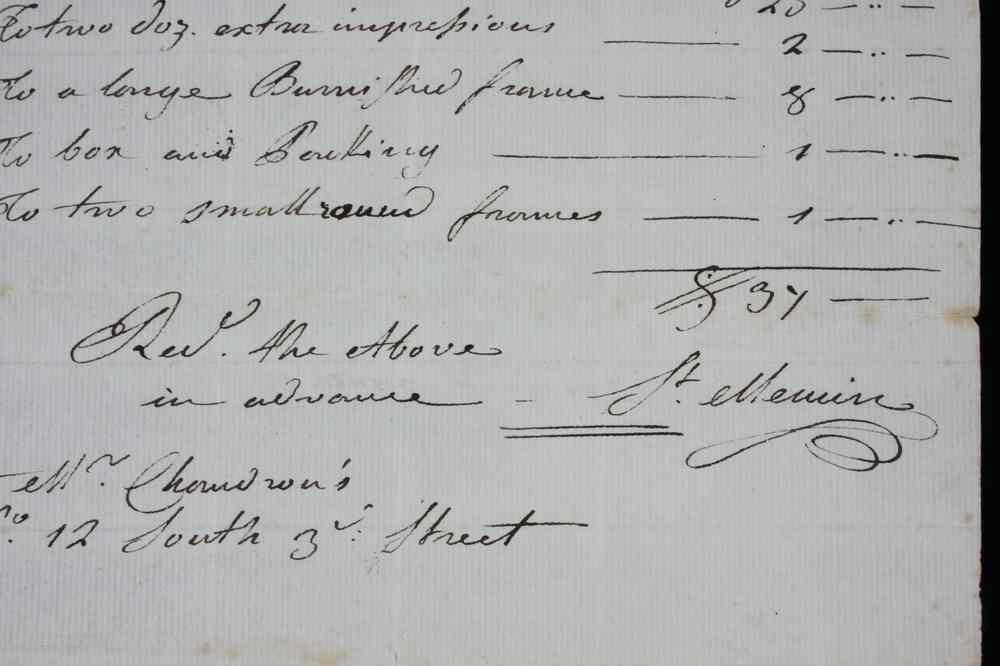 25 — .. —
To two doz. extra impressions — 2 — .. —
To a large Burnished frame — 8 — .. —
To box and Packing — 1 — .. —
To two small round frames — 1 — .. —
$ 37 —
Recd. the Above
in advance — St. Memin
Mr. Chaudron's
No. 12 South 3d. Street